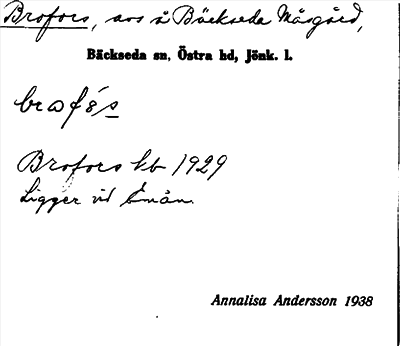 Brofors, avs å Bäckseda Måsgård,
Bäckseda sn, Östra hd, Jönk. l.
brofós
Brofors kb 1929
Ligger vid Emån.
Annalisa Andersson 1938